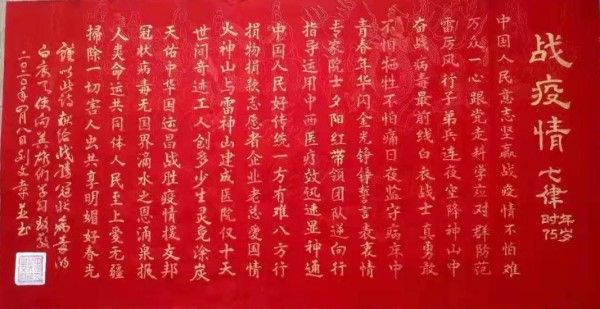 战疫情 七律
时年75岁
中国人民意志坚赢战疫情不怕难
万众一心跟党走科学应对群防范
雷厉风行子弟兵连夜空降神山中
奋战病毒最前线白衣战士真勇敢
不怕牺牲不怕痛日夜监守病床中
青春年华闪金光铮铮誓言表衷情
专家院士夕阳红带领团队逆向行
指导运用中西医疗效迅速显神通
中国人民好传统一方有难八方行
捐物捐款志愿者企业老总爱国情
火神山与雷神山建成医院仅十天
世间奇迹工人创多少生灵免涂炭
天佑中华国运昌战胜疫情援友邦
冠状病毒无国界滴水之恩涌泉报
人类命运共同体人民至上爱无疆
扫除一切害人虫共享明媚好春光
谨以此诗献给战胜冠状病毒的
白衣天使向英雄们学习致敬
二〇二〇年四月八日刘文景並书